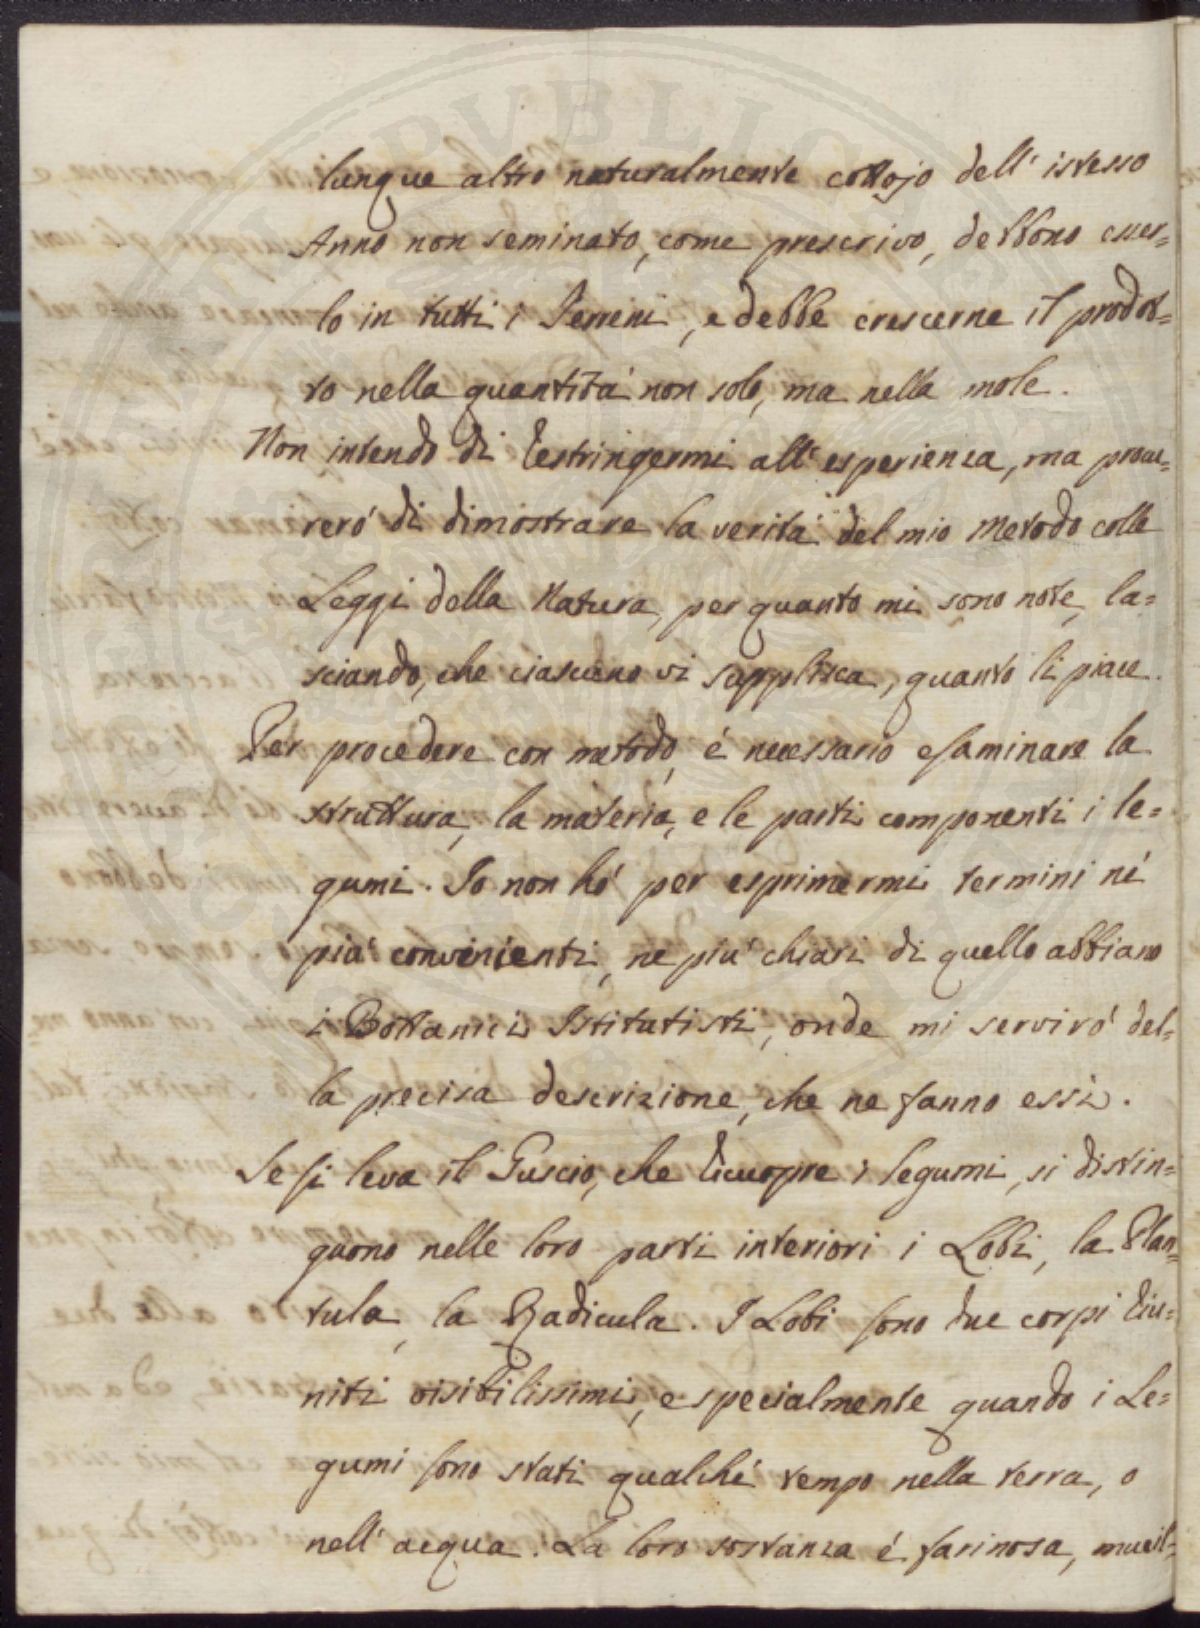 lunque altro naturalmente cottojo dell' istesso
Anno non seminato, come prescrivo, debbono esser=
lo in tutti i Terreni, e debbe crescerne il prodot=
to nella quantità non solo, ma nella mole.
Non intendo di restringermi all' esperienza, ma procu=
rerò di dimostrare la verità del mio Metodo colle
Leggi della Natura, per quanto mi sono note, la=
sciando, che ciascuno vi supplisca, quanto li piace.
Per procedere con metodo, é necessario esaminare la
struttura, la materia, e le parti componenti i le=
gumi. Io non hó per esprimermi termini né
piú convenienti, ne piú chiari di quello abbiano
i Bottanici Istitutisti, onde mi serviró del=
la precisa descrizione, che ne fanno essi.
Se si leva il Guscio, che ricuopre i legumi, si distin=
guono nelle loro parti interiori i Lobi, la Plan=
tula, la Radicula. I Lobi sono due corpi riu=
niti visibilissimi, e specialmente quando i Le=
gumi sono stati qualché tempo nella terra, o
nell' acqua. La loro sostanza é farinosa, mucil=
PUBLICA